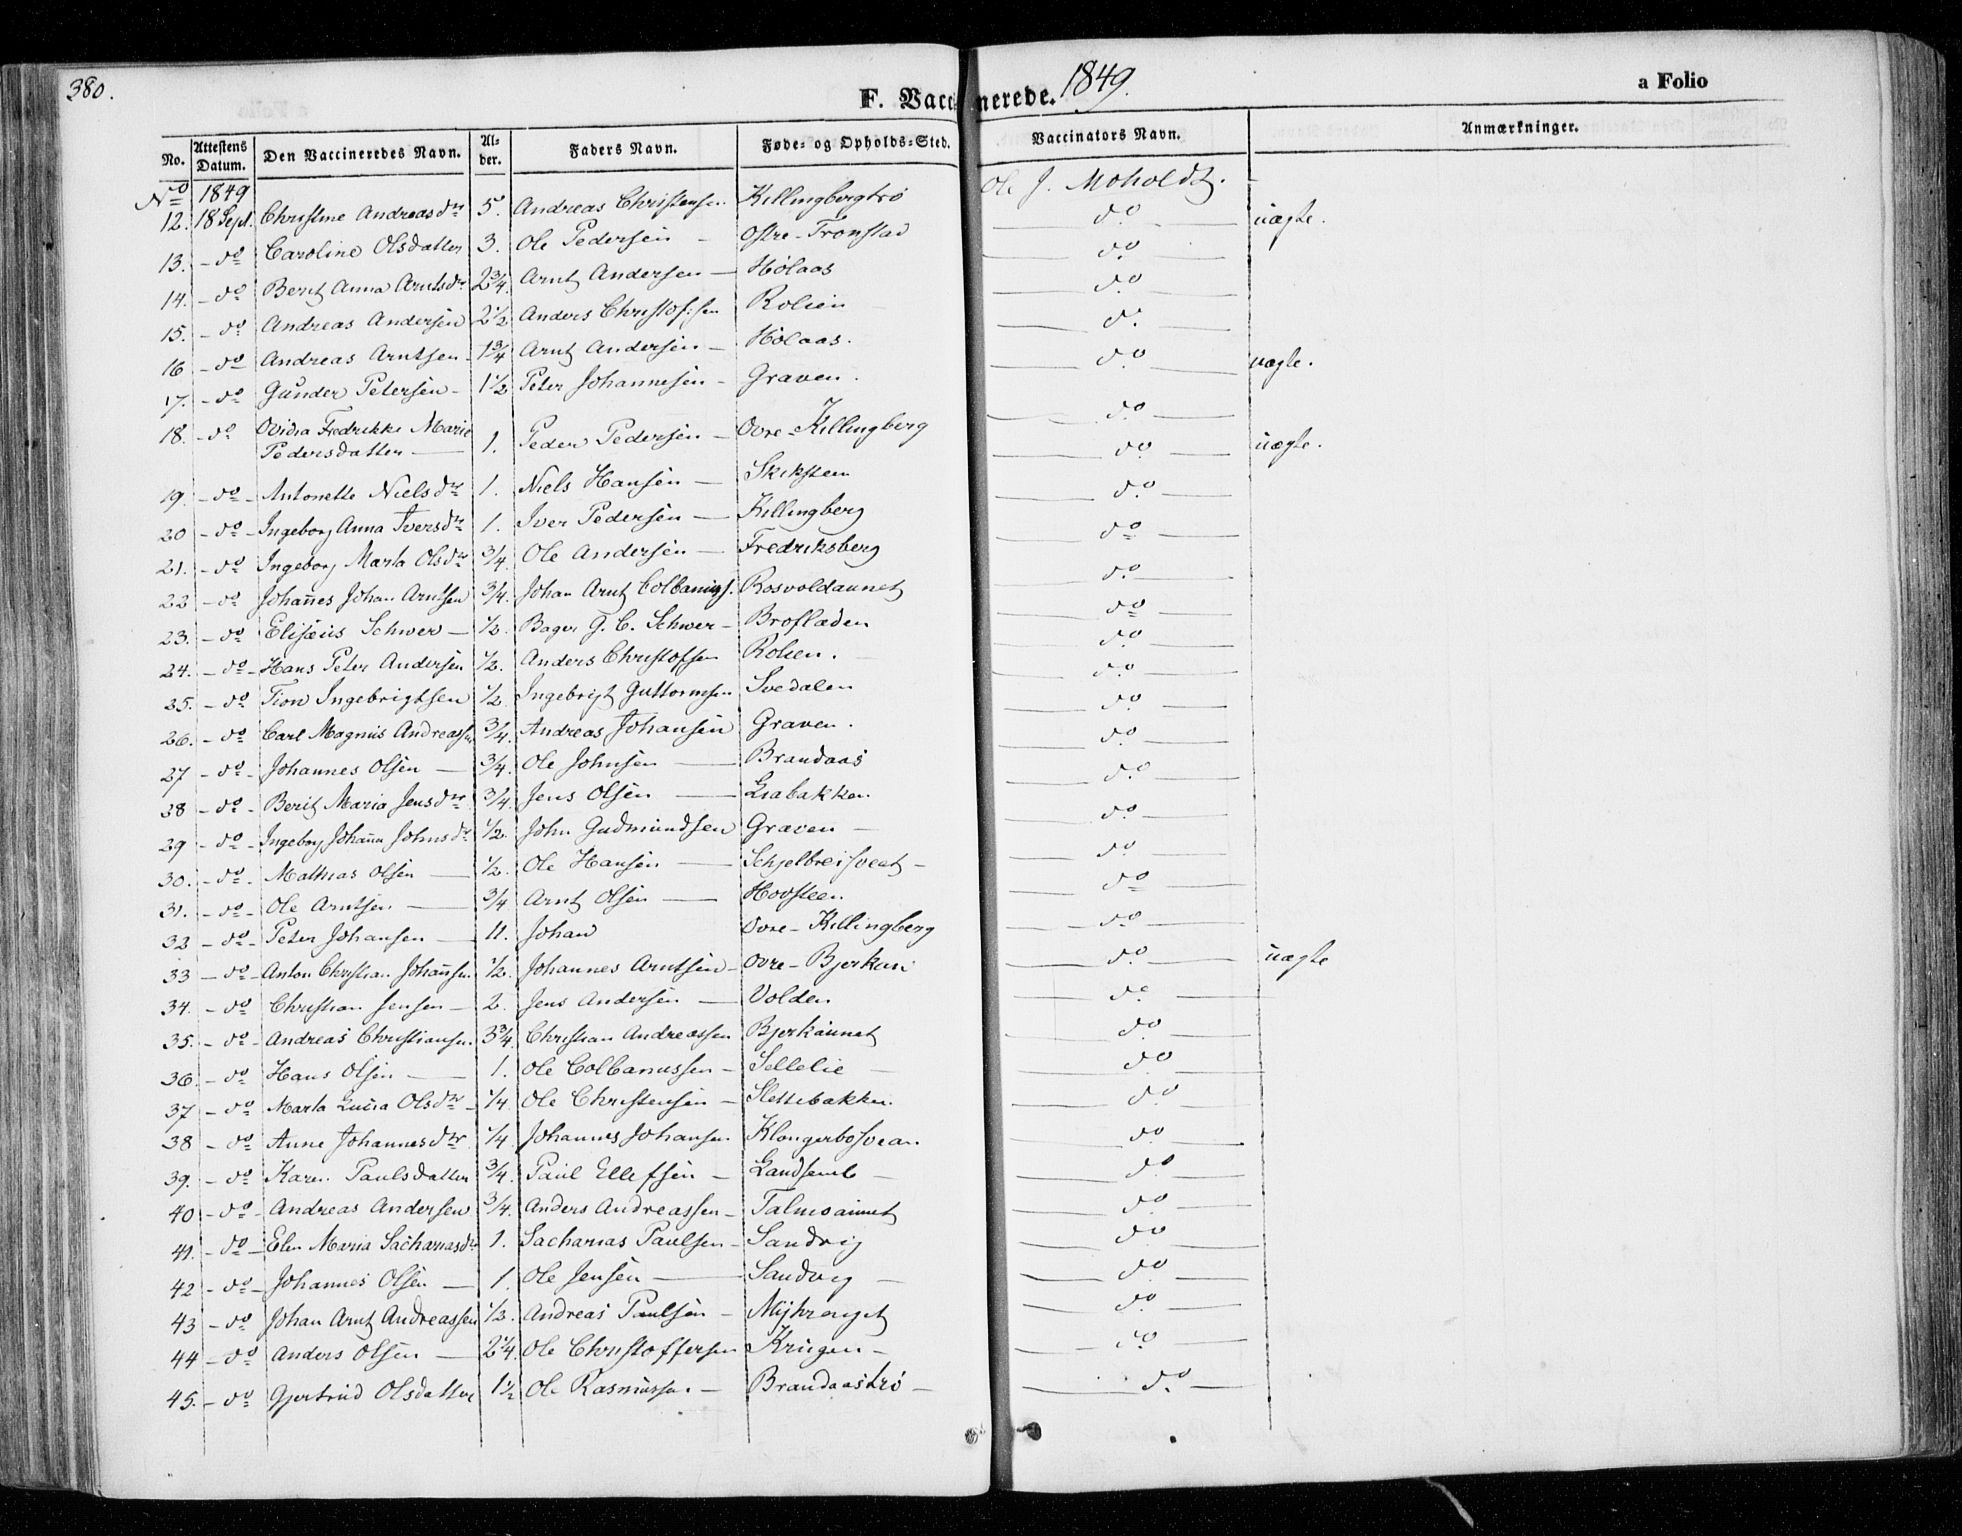 380.
F. Vaccinerede. 1849.
a Folio
No. Attestens Datum. Den Vaccineredes Navn. Alder. Faders Navn. Føde- og Opholds-Sted. Vaccinators Navn. Anmærkninger.
No 1849
12. 18 Sept. Christine Andreasdtr 5. Andreas Christensen Killingbergtrø Ole J. Moholdt.
13. - do Caroline Olsdatter 3. Ole Pedersen - Østre-Tronstad do uægte.
14. - do Berit Anna Arntsdtr 2 3/4. Arnt Andersen - Hølaas do
15. - do Andreas Andersen 2 1/2 Anders Christofsen Rolien do
16 - do Andreas Arntsen - 1 3/4 Arnt Andersen - Hølaas. do
17. - do Gunder Petersen - 1 1/2 Peter Johannesen - Graven. do uægte.
18. - do Ovidia Fredrikke Marie
Pedersdatter - 1. Peder Pedersen - Øvre-Killingberg do
19. - do - Antonette Nielsdtr 1. Niels Hansen - Skiksteen do uægte.
20 - do - Ingeborg Anna Iversdtr 1. Iver Pedersen - Killingberg do
21. - do - Ingeborg Marta Olsdtr 3/4. Ole Andersen - Fredriksberg do
22 - do Johañes Johan Arntsen 3/4. Johan Arnt Colbanigs. Rosvoldaunet do
23. - do Elisæus Schwer - 1/2. Bager G. C. Schwer - Brofladen do
24. - do - Hans Peter Andersen 1/2. Anders Christofsen Rolien. do
25. - do Tion Ingebrigtsen 1/2 Ingebrigt Guttormsen Svedalen do
26. - do Carl Magnus Andreassen 3/4. Andreas Johansen Graven. do
27 - do - Johannes Olsen - 3/4. Ole Johnsen - Brandaas do
28 - do - Berit Maria Jensdtr 3/4. Jens Olsen - Liabakken do
29 - do - Ingeborg Johaña Johnsdtr 1/2. John Gudmundsen Graven - do
30. - do - Mathias Olsen - 1/2. Ole Hansen - Schjelbreisveet - do
31. - do - Ole Arntsen - 3/4 Arnt Olsen - Hovsteen do
32 - do - Peter Johansen - 11. Johan Øvre-Killingberg do
33 - do - Anton Christian Johañsen 1/2. Johannes Arntsen - Øvre-Bjerkan do uægte
34. - do - Christian Jensen - 2. Jens Andersen - Volden do
35. - do - Andreas Christiansen 3 3/4. Christian Andreassen Bjerkaunet do
36. - do Hans Olsen - 1. Ole Colbanussen - Sellelie - do
37 - do - Marta Lucia Olsdtr - 1/4 Ole Christensen - Slettebakken. do
38 - do Anne Johannesdtr 1/4 Johannes Johansen Klongerbosvean do
39. - do Karen Paulsdatter 3/4. Paul Ellefsen - Landsemb - do
40 - do - Andreas Andersen 3/4. Anders Andreassen - Talmoaunet do
41. - do - Elen Maria Sachariasdtr 1. Sacharias Paulsen - Sandvig do
42 - do - Johannes Olsen - 1. Ole Jensen - Sandvig - do
43 - do Johan Arnt Andreassen 1/2. Andreas Paulsen - Myhrenget do
44 - do Anders Olsen - 2 1/4. Ole Christoffersen Krugen - do
45. - do Gjertrud Olsdatter 1 1/2 Ole Rasmussen - Brandaastrø - do